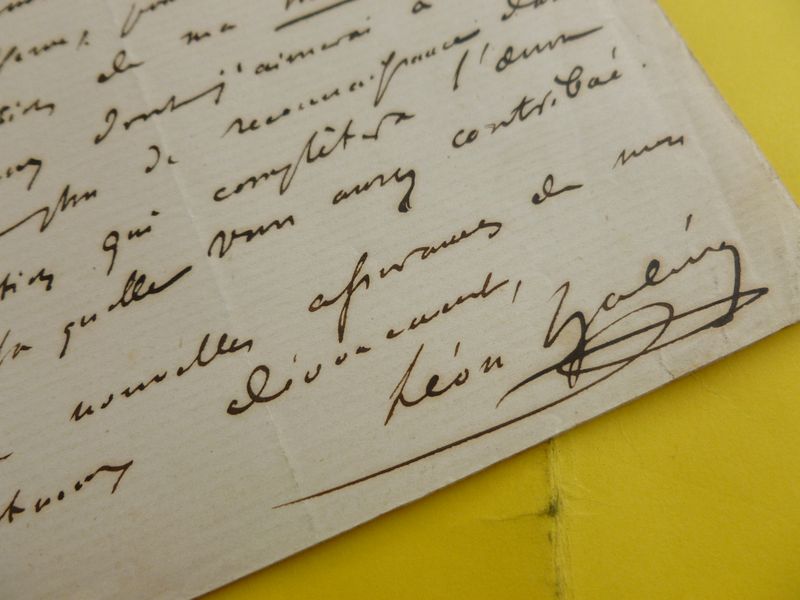 de ma
dont j'aimerai à
de reconnaissance dans
qui complètera l'œuvre
laquelle vous aurez contribué.
nouvelles assurances de mon
dévouement,
Léon Halévy